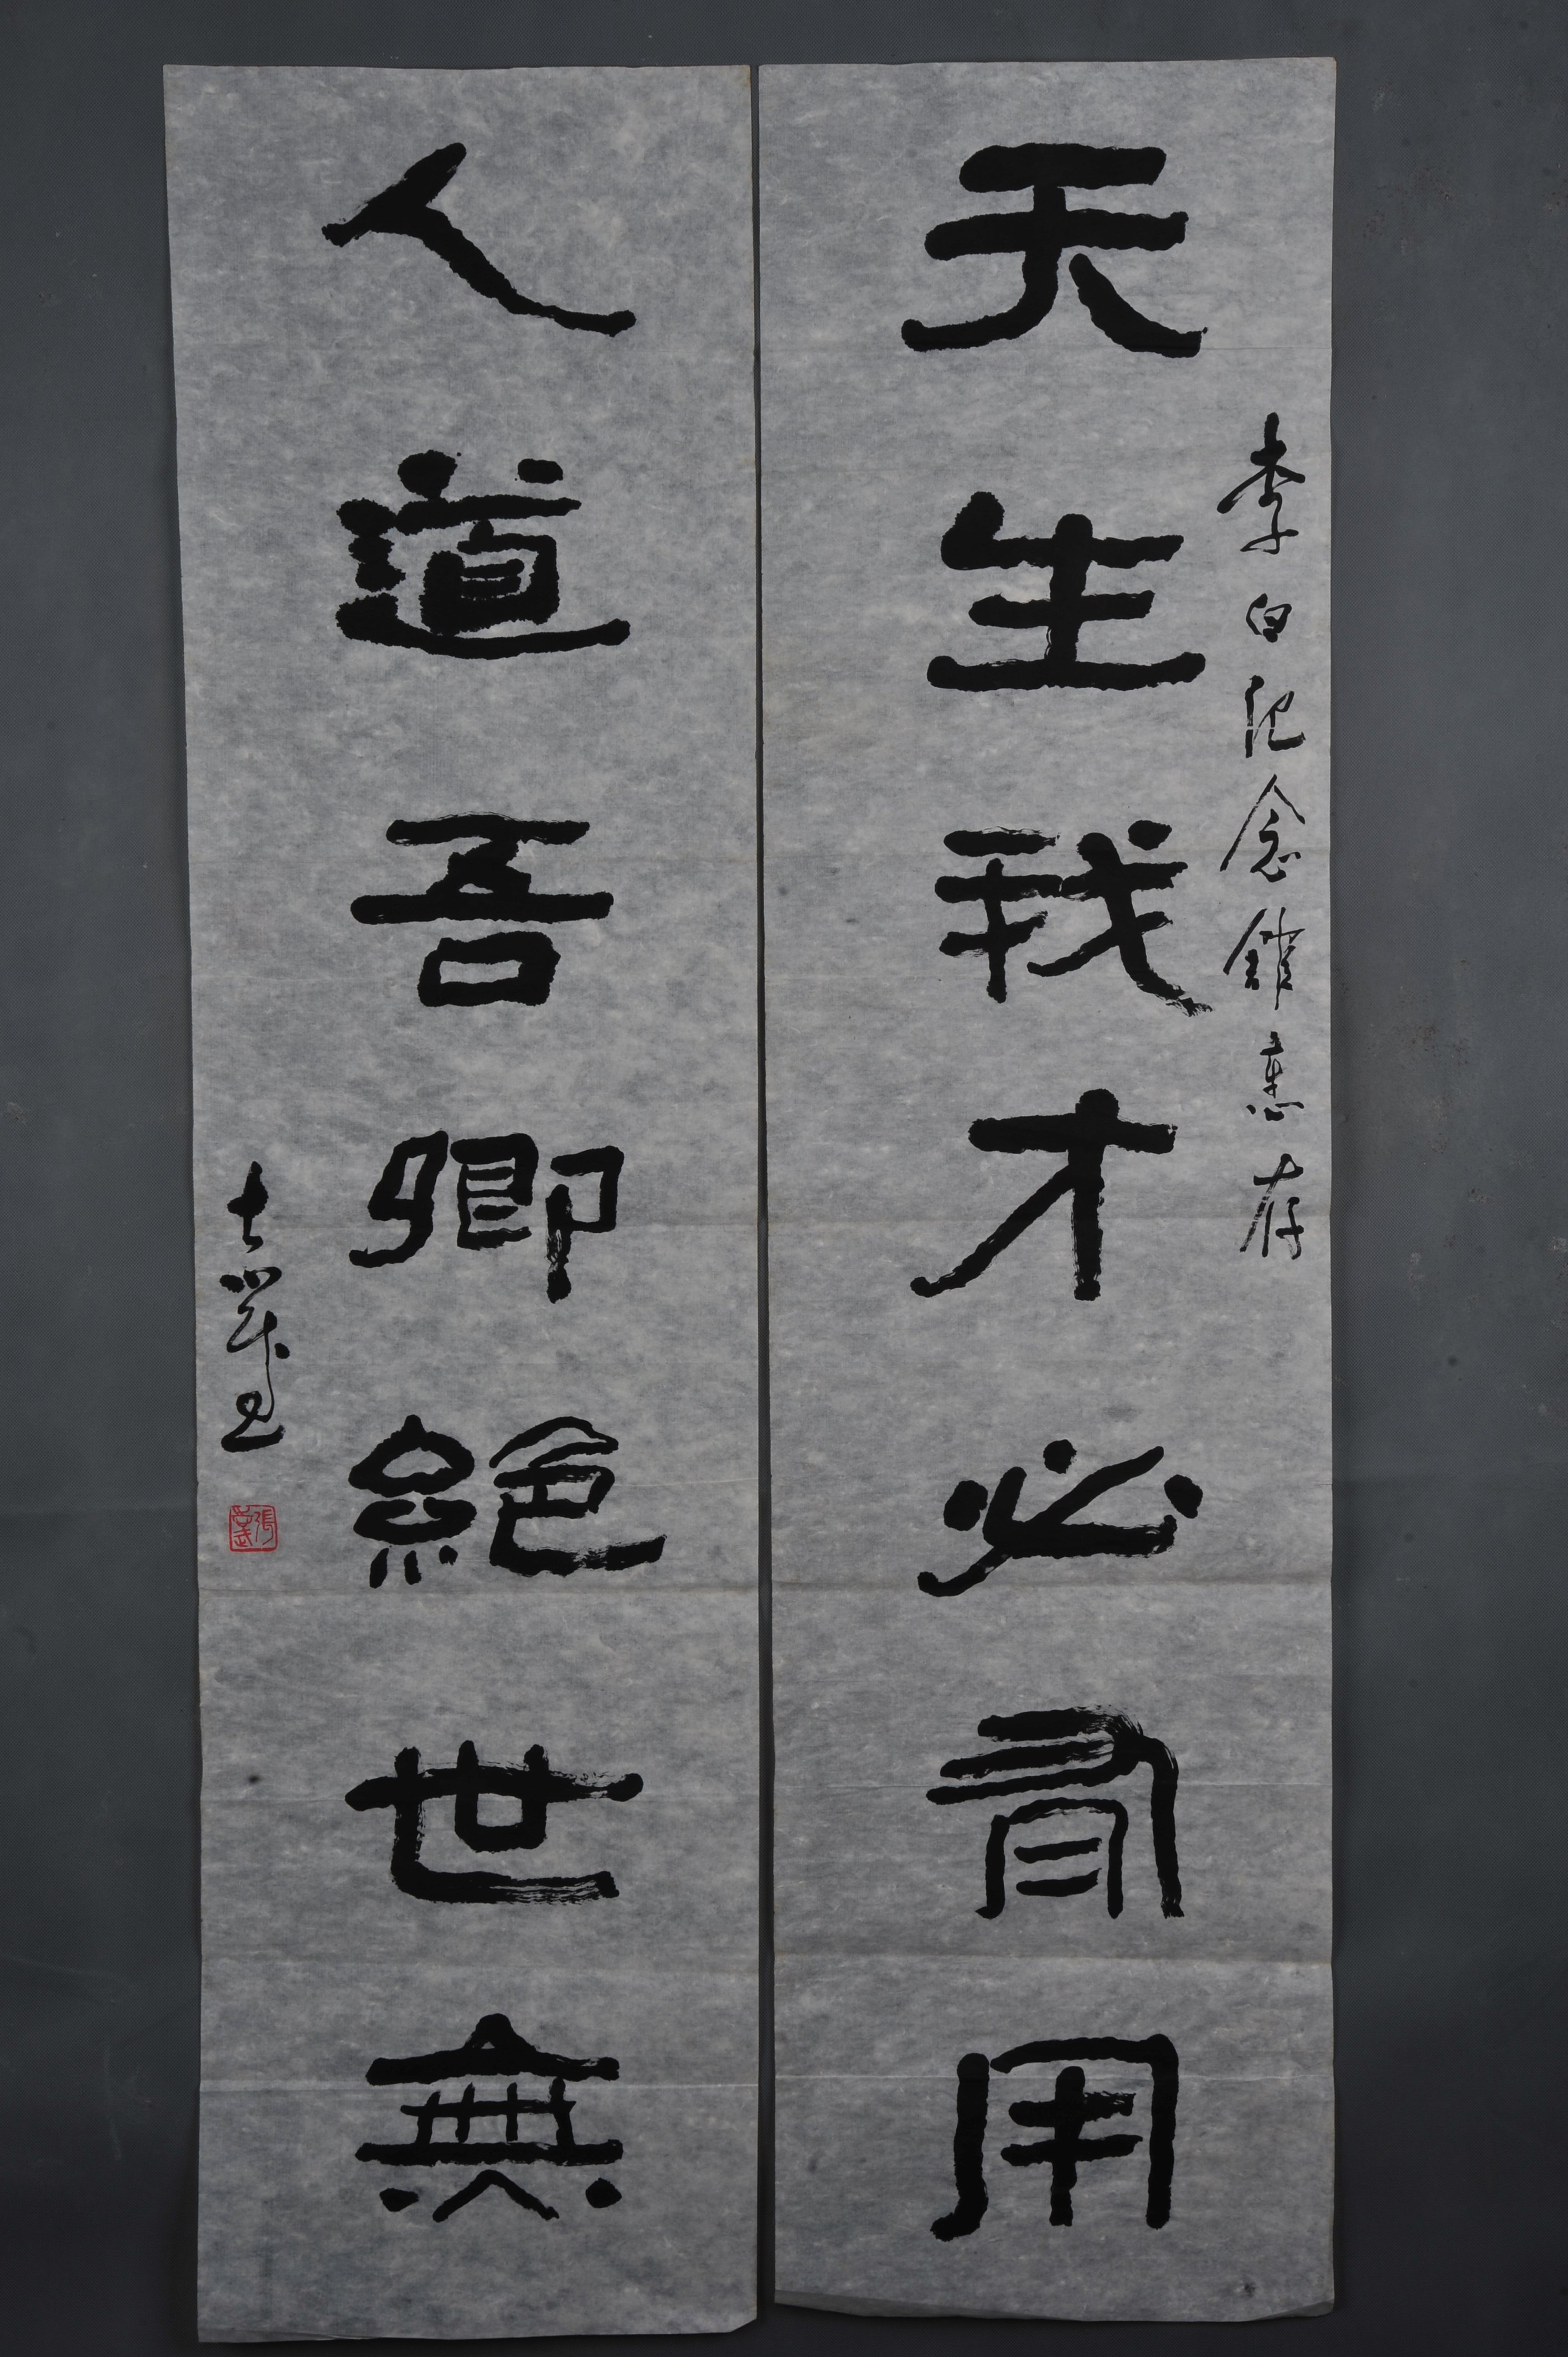 天生我才必有用
李白纪念馆惠存
人道吾卿絕世無